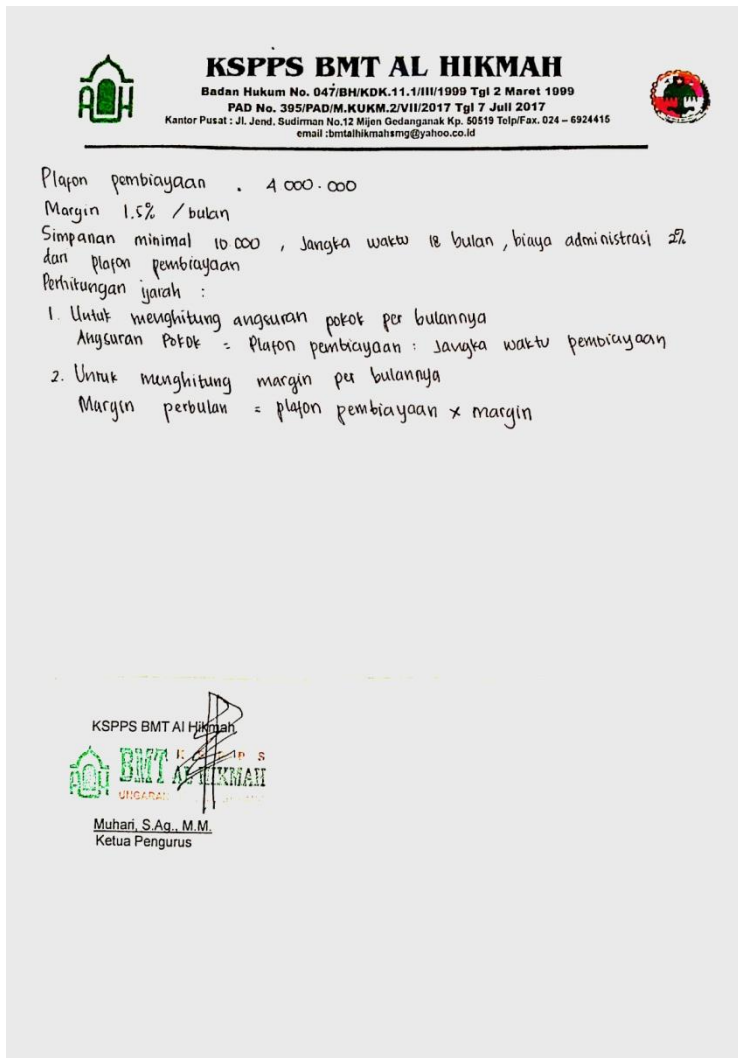 KSPPS BMT AL HIKMAH
Badan Hukum No. 047/BH/KDK.11.1/III/1999 Tgl 2 Maret 1999
PAD No. 395/PAD/M.KUKM.2/VII/2017 Tgl 7 Juli 2017
Kantor Pusat : Jl. Jend. Sudirman No.12 Mijen Gedanganak Kp. 50519 Telp/Fax. 024 – 6924415
email :bmtalhikmahsmg@yahoo.co.id
Plafon pembiayaan . 4 000.000
Margin 1.5% / bulan
Simpanan minimal 10 000 , Jangka waktu 18 bulan , biaya administrasi 2%
dari plafon pembiayaan
Perhitungan ijarah :
1. Untuk menghitung angsuran pokok per bulannya
Angsuran Pokok = Plafon pembiayaan : Jangka waktu pembiayaan
2. Untuk menghitung margin per bulannya
Margin perbulan = plafon pembiayaan x margin
KSPPS BMT Al Hikmah
BMT AL HIKMAH
UNGARAN
Muhari, S.Ag., M.M.
Ketua Pengurus